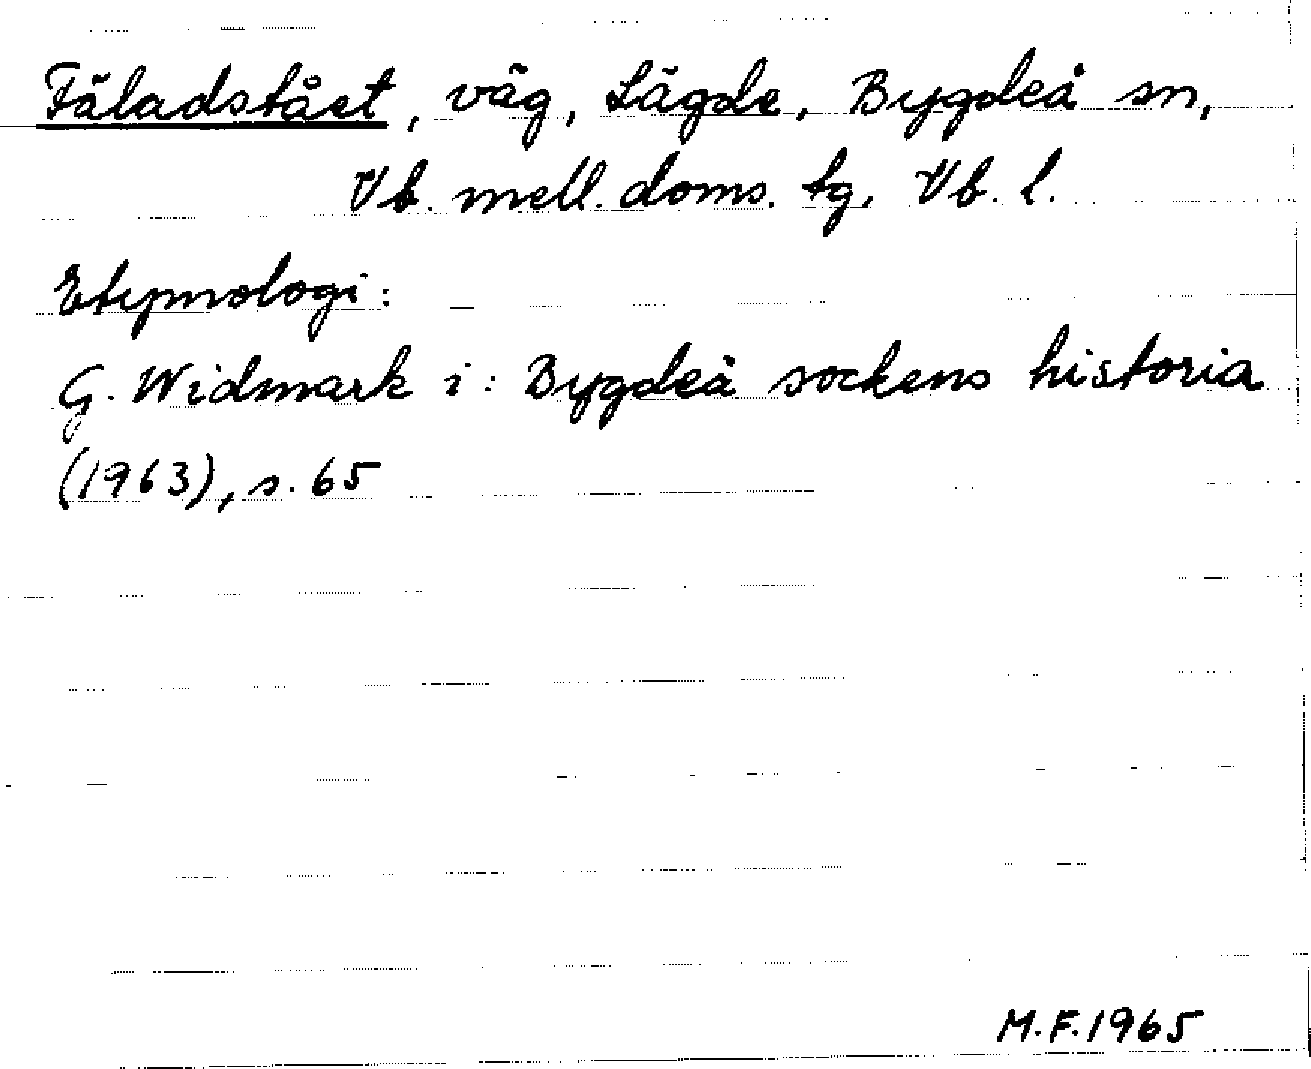 Fäladstået, väg, Lägde, Bygdeå sn,
Vb. mell. doms. tg, Vb. l.
Etymologi:
G. Widmark i: Bygdeå sockens historia
(1963), s. 65
M.F.1965